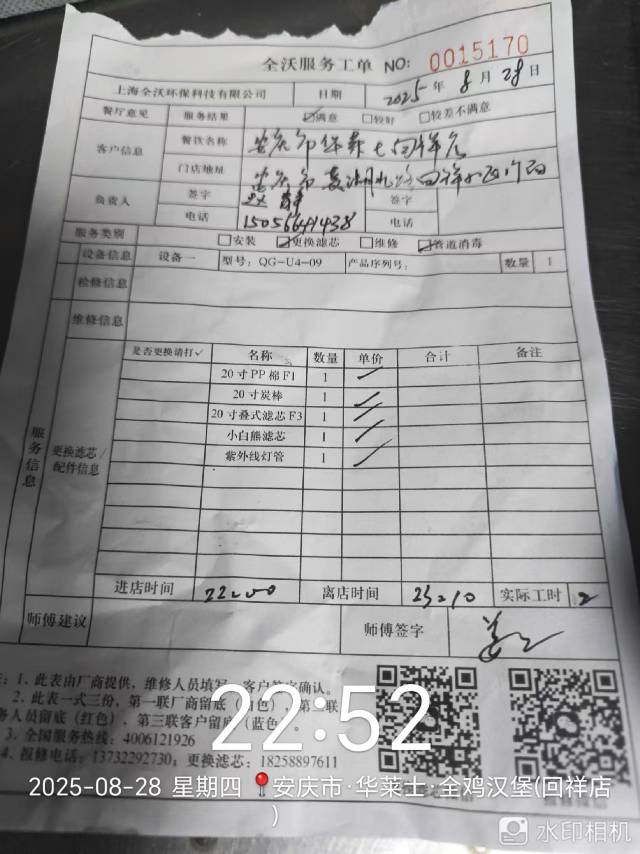 全沃服务工单 NO: 0015170
上海全沃环保科技有限公司 日期 2025年8月28日
餐厅意见 服务结果 ☑满意 □较好 □较差不满意
客户信息 餐饮名称 安庆市华莱士回祥店
门店地址 安庆市 湖 回祥小区门面
负责人 签字 签字
电话 15056641438 电话
服务类别 □安装 ☑更换滤芯 □维修 ☑管道消毒
设备信息 设备一 型号: QG-U4-09 产品序列号: 数量 1
检修信息
维修信息
服务信息
更换滤芯/配件信息
是否更换请打✓ 名称 数量 单价 合计 备注
20寸PP棉F1 1
20寸炭棒 1
20寸叠式滤芯F3 1
小白熊滤芯 1
紫外线灯管 1
进店时间 22:00 离店时间 23:10 实际工时 2
师傅建议 师傅签字
注: 1、此表由厂商提供，维修人员填写，客户签字确认。
2、此表一式三份，第一联厂商留底（白色），第二联
务人员留底（红色），第三联客户留底（蓝色）。
3、全国服务热线: 4006121926
4、报修电话: 13732292730; 更换滤芯: 18258897611
22:52
2025-08-28 星期四 安庆市·华莱士·全鸡汉堡(回祥店
)
水印相机